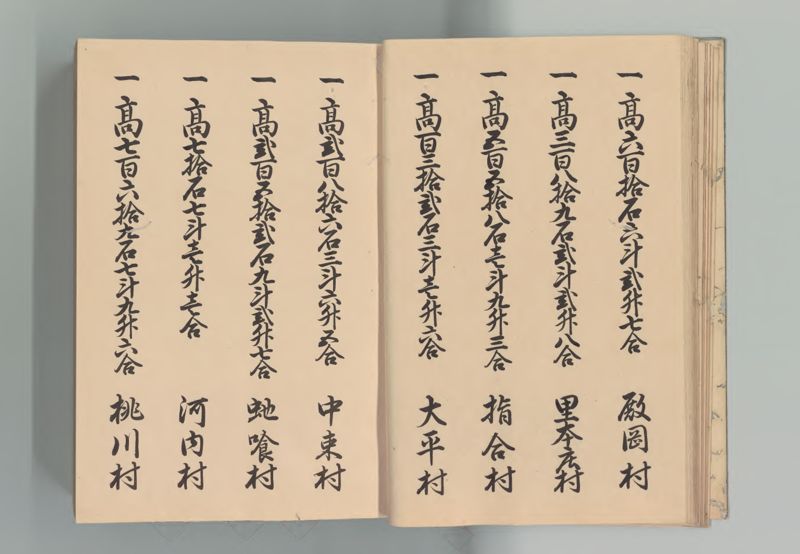 一高六百拾石六斗弐升七合 殿岡村
一高三百八拾九石弐斗弐升八合 里本庄村
一高五百五拾八石壱斗九升三合 指合村
一高百三拾弐石三斗壱升六合 大平村
一高弐百八拾六石三斗六升五合 中束村
一高弐百五拾弐石九斗弐升七合 蛇喰村
一高七拾石七斗壱升壱合 河内村
一高七百六拾九石七斗九升六合 桃川村